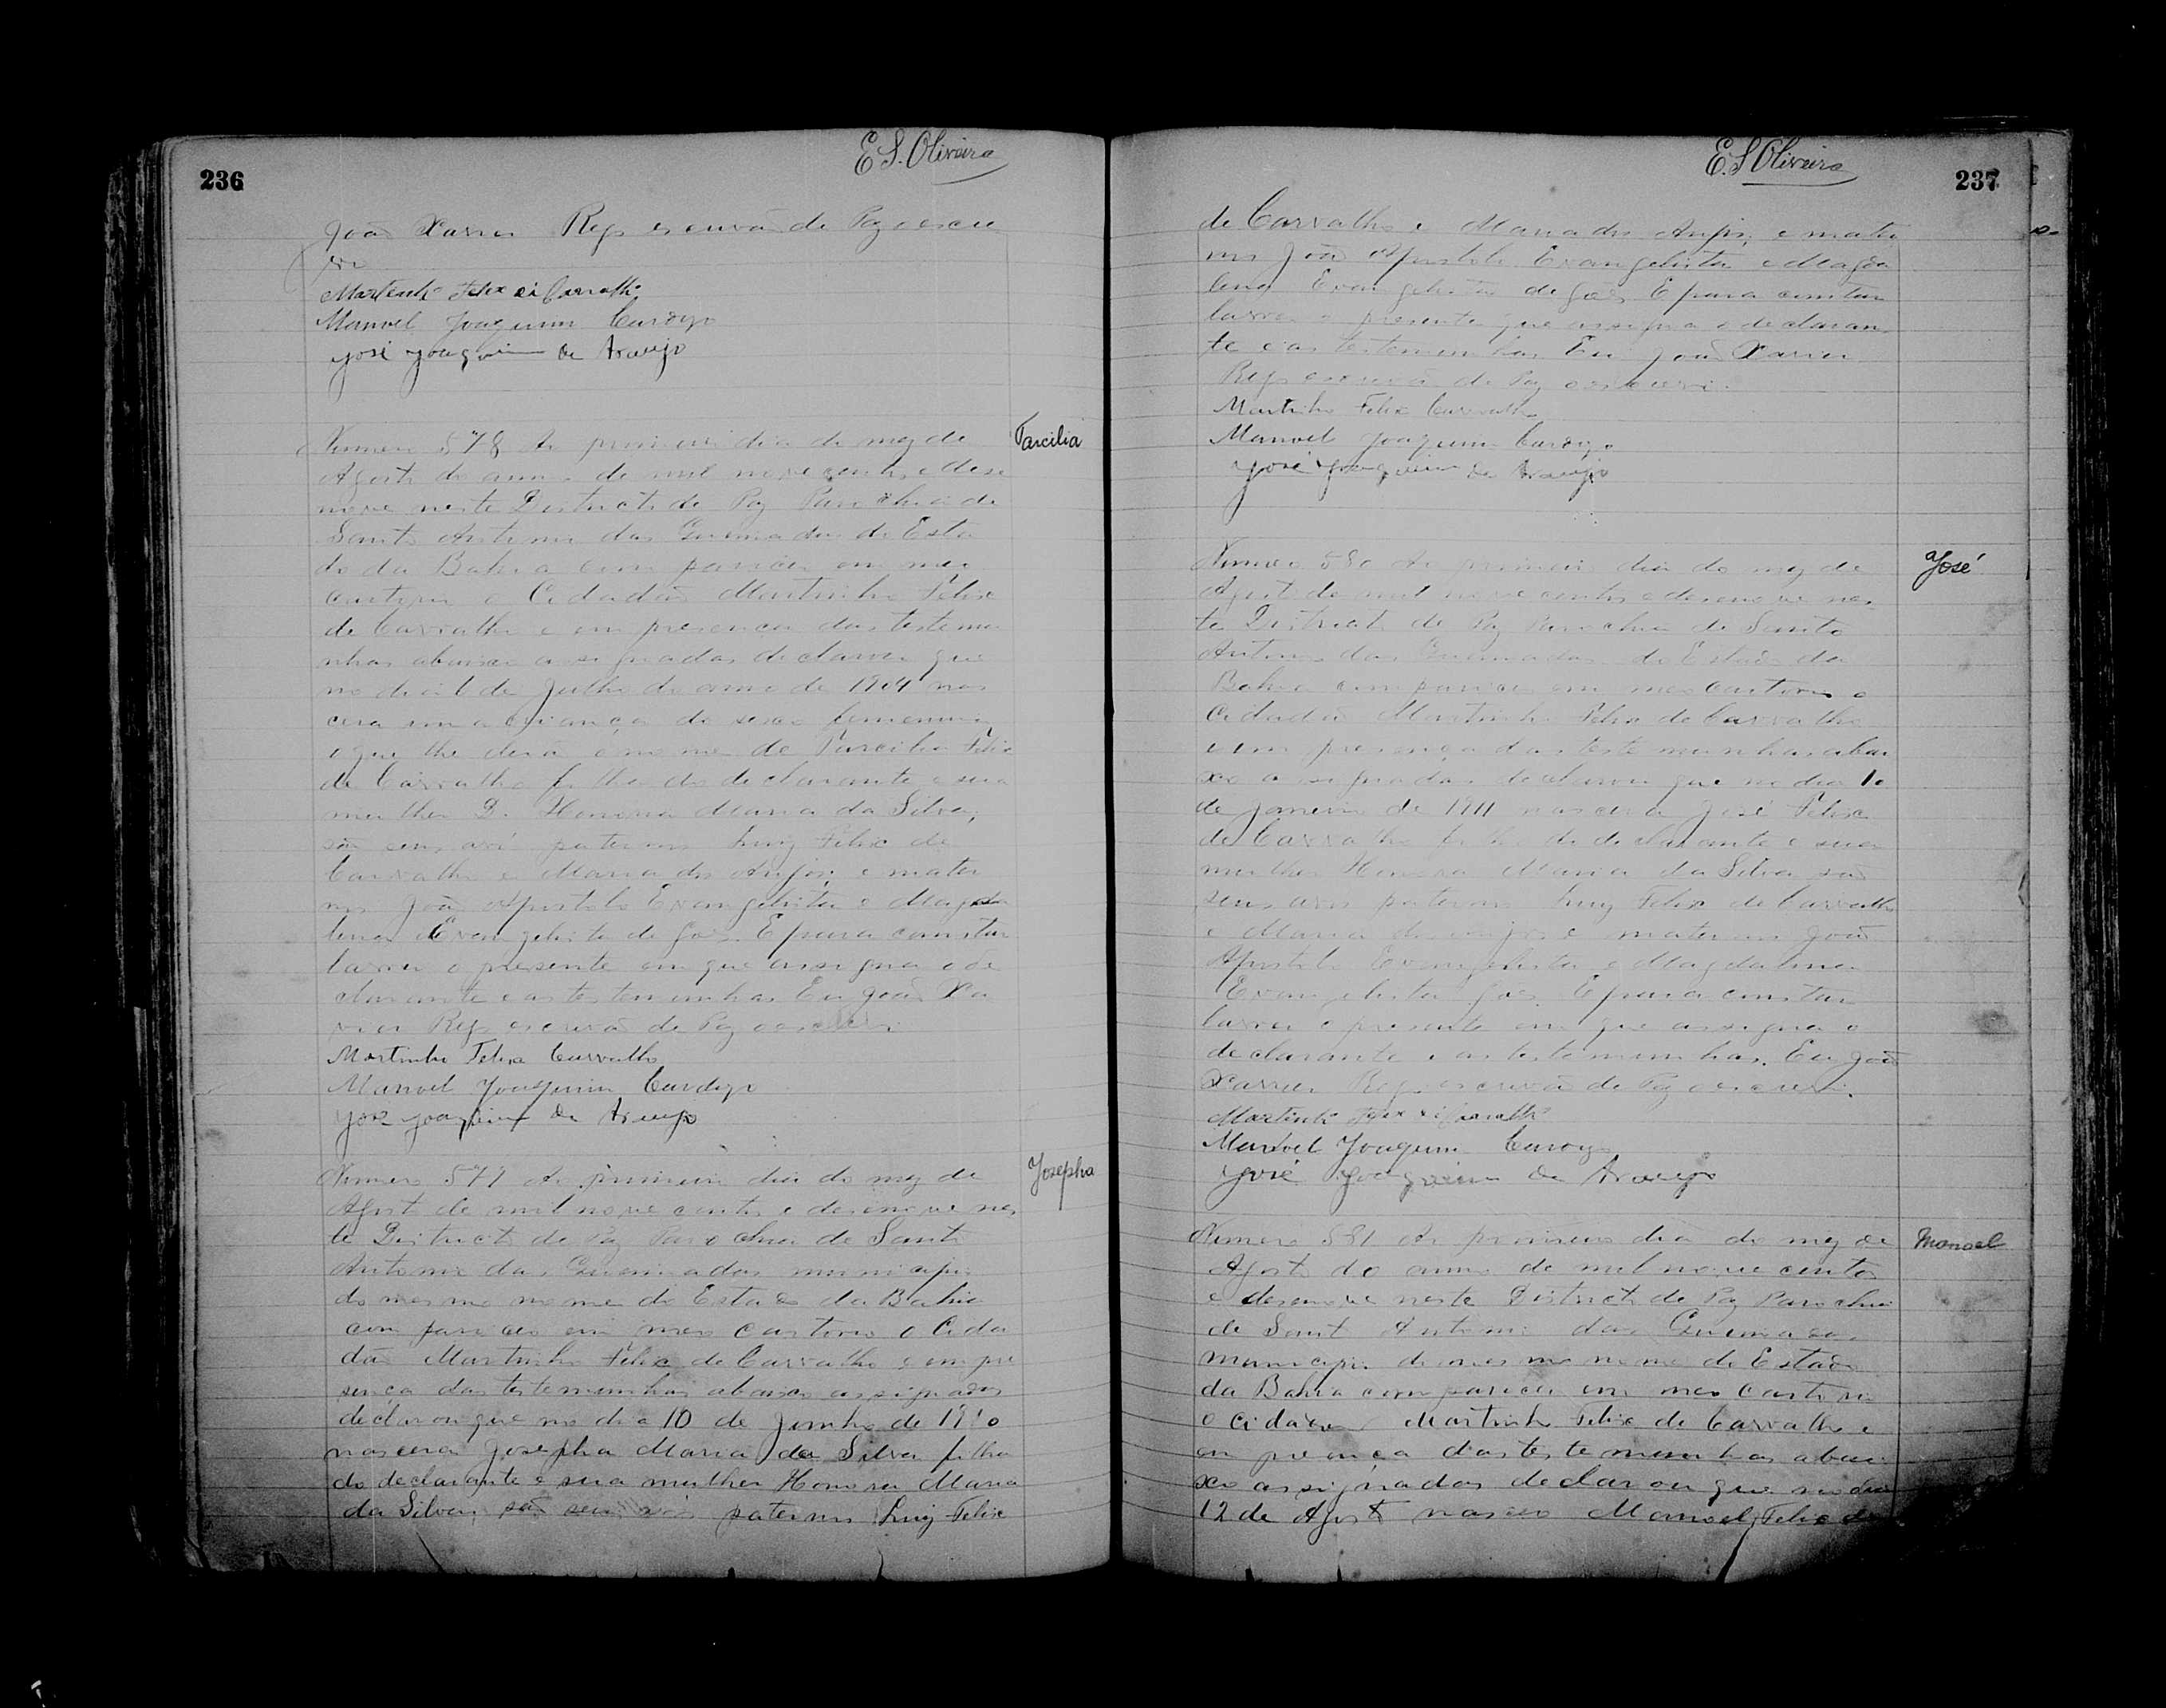 236
E S. Oliveira
João Xavier Reges escrivão de Paz o escre
vi
Martinho Felix de Carvalho
Manoel Joaquim Cardozo
José Joaquim de Araujo
Tarcilia
Numero 578 Ao primeiro dia do mez de
Agosto do anno de mil nove centos e dese
nove neste Districto de Paz Parochia de
Santo Antonio das Queimadas do Esta
do da Bahia compareceu em meu
cartorio o Cidadão Martinho Felix
de Carvalho e em presença das testemu
nhas abaixo assignadas declarou que
no dia 6 de Julho do anno de 1904 nas
cera uma criança do sexo femenino
o que lhe dera o nome de Tarcilia Felix
de Carvalho filha do declarante e sua
mulher D. Honoria Maria da Silva,
são seus avós paternos Luiz Felix de
Carvalho e Maria dos Anjos; e mater
nos João Apostolo Evangelista e Magda
lena Evangelista de Góes. E para constar
lavrei o presente em que assigna o de
clarante e as testemunhas. Eu João Xa
vier Reges escrivão de Paz o escrevi
Martinho Felix Carvalho
Manoel Joaquim Cardozo
José Joaquim de Araujo
Josepha
Numero 579 Ao primeiro dia do mez de
Agosto de mil nove centos e desenove nes
te Districto de Paz Parochia de Santo
Antonio das Queimadas municipio
do mesmo nome do Estado da Bahia
compareceo em meo cartorio o Cida
dão Martinho Felix de Carvalho e em pre
sença das testemunhas abaixo assignadas
declarou que no dia 10 de Junho de 1910
nascera Josepha Maria da Silva filha
do declarante e sua mulher Honoria Maria
da Silva, são seus avós paternos Luiz Felix
E. S Oliveira
237
de Carvalho e Maria dos Anjos, e mater
nos João Apostolo Evangelista e Magda
lena Evangelista de Góes. E para constar
lavrei o presente que assigna o declaran
te e as testemunhas. Eu João Xavier
Reges escrivão de Paz o escrevi.
Martinho Felix Carvalho
Manoel Joaquim Cardozo
José Joaquim de Araujo
José
Numero 580 Ao primeiro dia do mez de
Agosto de mil nove centos e desenove nes
te Districto de Paz Parochia de Santo
Antonio das Queimadas do Estado da
Bahia compareceo em meo Cartorio o
Cidadão Martinho Felix de Carvalho
e em presença das testemunhas abai
xo assignadas declarou que no dia 1o
de Janeiro de 1911 nascera José Felix
de Carvalho filho do declarante e sua
mulher Honoria Maria da Silva são
seus avós paternos Luiz Felix de Carvalho
e Maria dos Anjos e maternos João
Apostolo Evangelista e Magdalena
Evangelista Góes. E para constar
lavrei o presente em que assigna o
declarante e as testemunhas. Eu João
Xavier Reges escrivão de Paz o escrevi.
Martinho Felix de Carvalho
Manoel Joaquim Cardozo
José Joaquim de Araujo
Manoel
Numero 581 Ao primeiro dia do mez de
Agosto do anno de mil nove centos
e desenove neste Districto de Paz Parochia
de Santo Antonio das Queimadas
municipio do mesmo nome do Estado
da Bahia compareceu em meo Cartorio
o cidadão Martinho Felix de Carvalho e
em presença das testemunhas abai
xo assignadas declarou que no dia
12 de Agosto nasceo Manoel Felix de